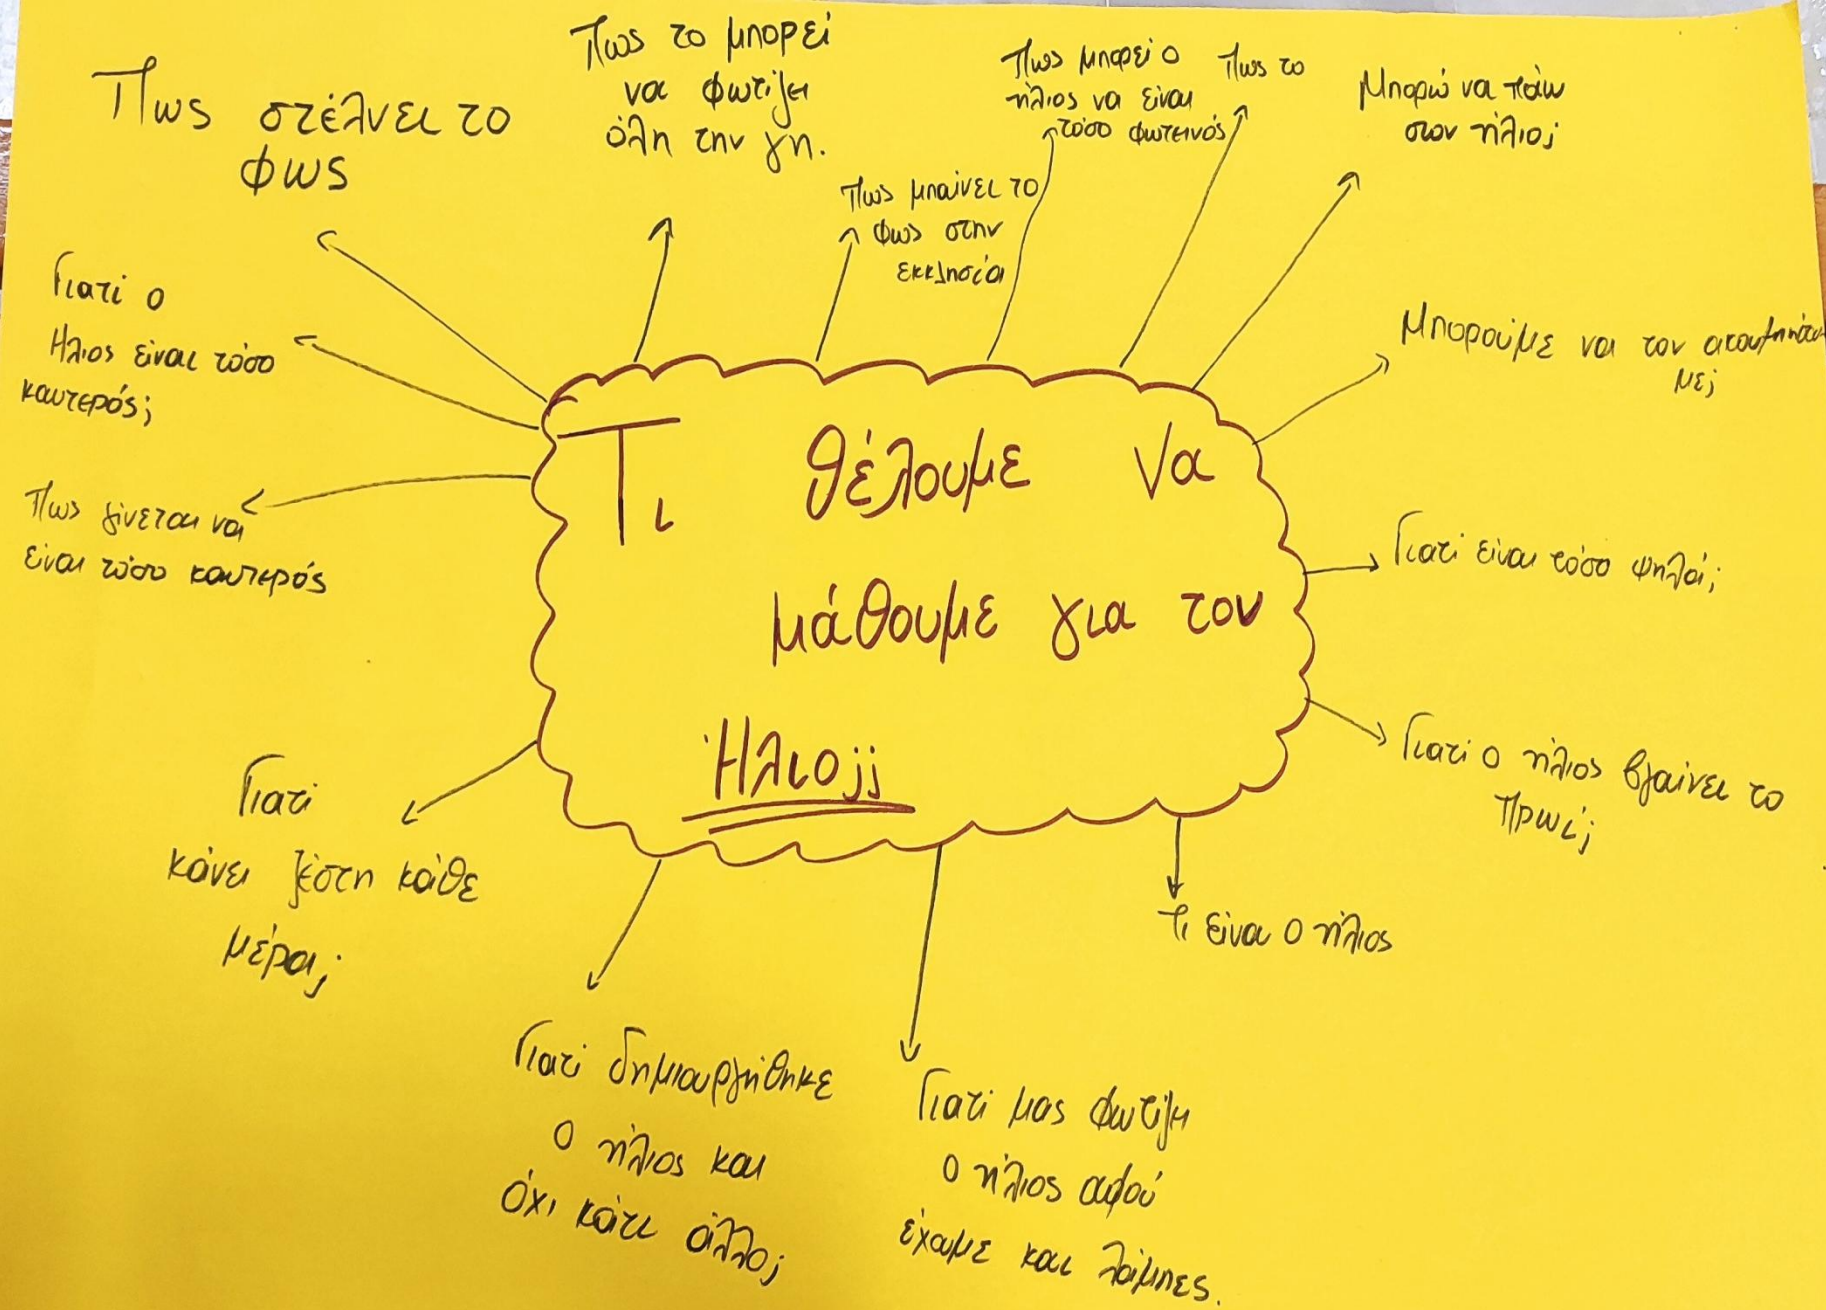 Τι θέλουμε να
μάθουμε για τον
Ήλιο;;
Πως στέλνει το
φως
Πως το μπορεί
να φωτίζει
όλη την γη.
Πως μπαίνει το
φως στην
εκκλησία
Πως μπορεί ο
ήλιος να είναι
τόσο φωτεινός
Πως το
Μπορώ να πάω
στον ήλιο;
Μπορούμε να τον ακουμπήσου
με;
Γιατί είναι τόσο ψηλά;
Γιατί ο ήλιος βγαίνει το
πρωί;
Τι είναι ο ήλιος
Γιατί μας φωτίζει
ο ήλιος αφού
έχουμε και λάμπες.
Γιατί δημιουργήθηκε
ο ήλιος και
όχι κάτι άλλο;
Γιατί
κάνει ζέστη κάθε
μέρα;
Πως γίνεται να
είναι τόσο καυτερός
Γιατί ο
Ήλιος είναι τόσο
καυτερός;